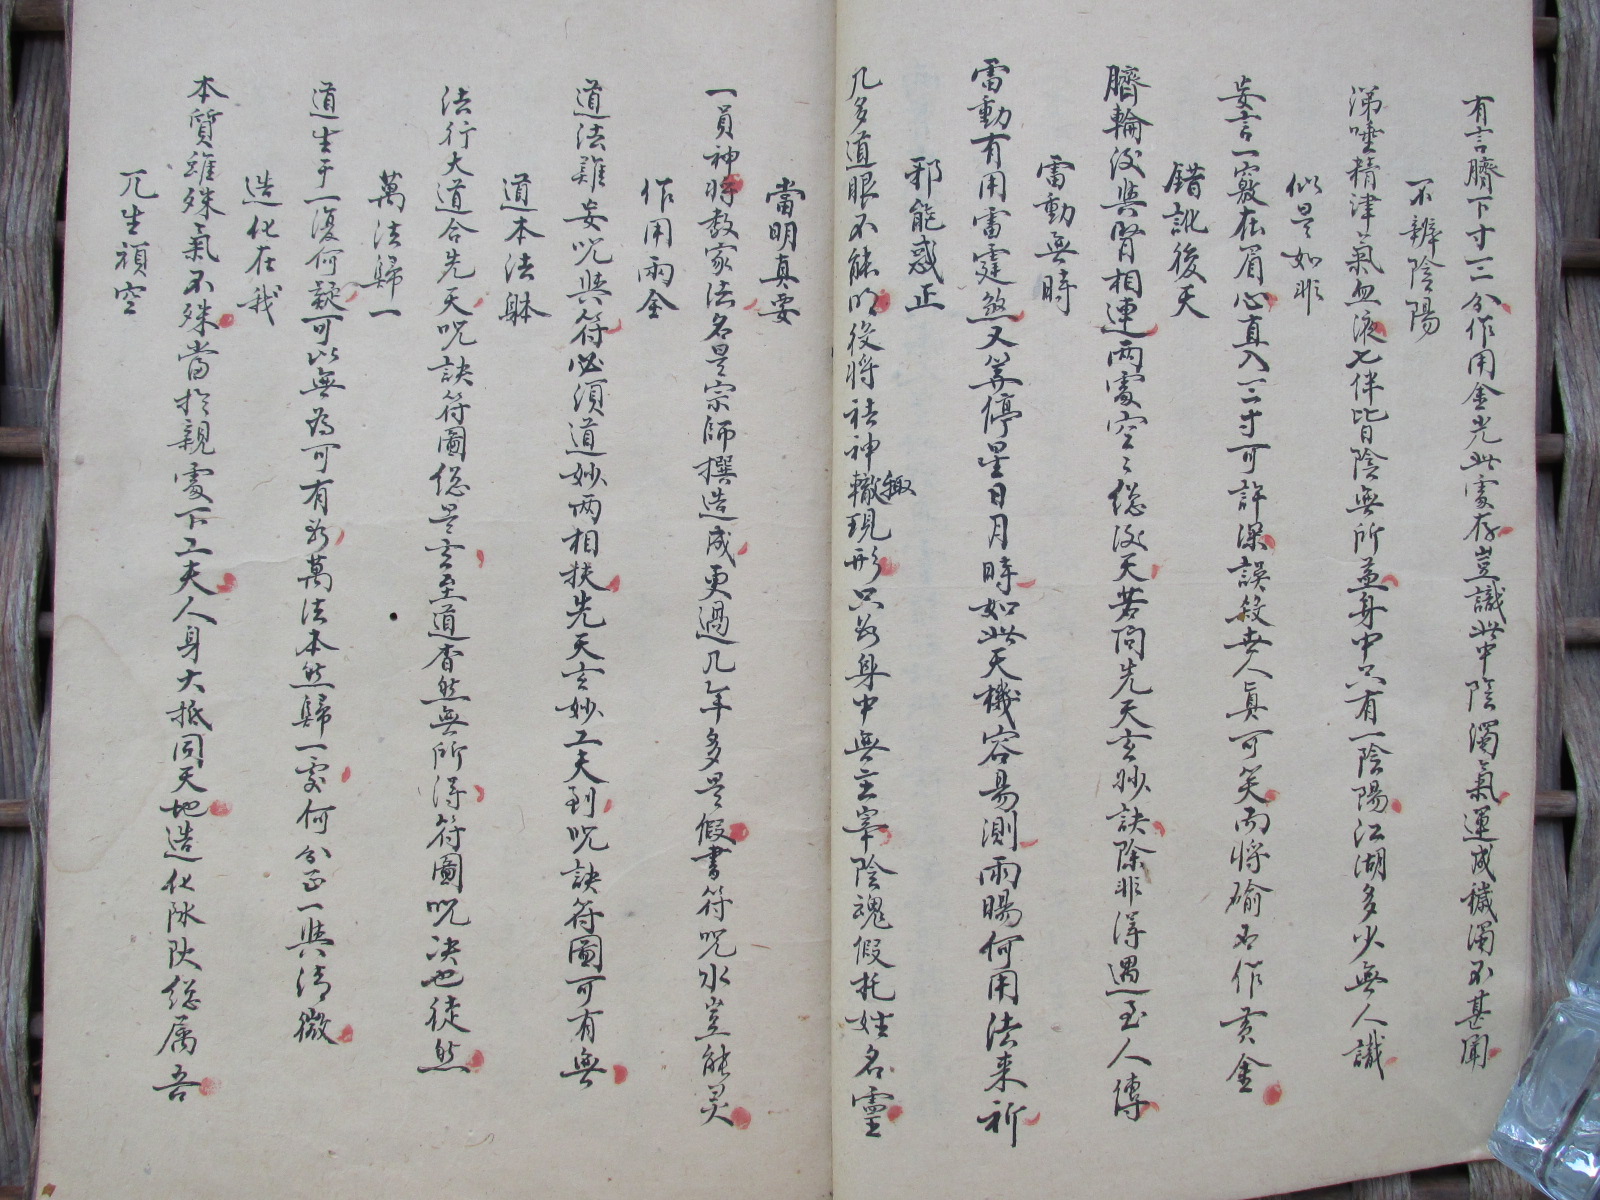 有言臍下寸三分作用金光此處存豈識此中陰濁氣運成穢濁不甚聞
不辨陰陽
涕唾精津氣血液七件皆陰無所益身中只有一陰陽江湖多少無人識
似是如非
妄言一竅在眉心直入三寸可許深誤殺世人真可笑而將瑜石作黃金
錯訛後天
臍輪後與腎相連兩處空々總後天若問先天玄妙訣除非得遇至人傳
雷動無時
雷動有用雷霆煞又等停星日月時如此天機容易測雨暘何用法來祈
邪能惑正
几多道眼不能明後將禧神轍趣現形只為身中無主宰陰魂假托姓名靈
當明真要
一員神將教家法名是宗師撰造成更過几年多是假書符咒水豈能灵
作用兩全
道法難妄咒與符必須道妙兩相扶先天玄妙工夫到咒訣符圖可有無
道本法躰
法行大道合先天咒訣符圖總是玄至道杳然無所得符圖咒决也徒然
萬法歸一
道生于一復何疑可以無為可有為萬法本然歸一處何分正一與清微
造化在我
本質雖殊氣不殊當於親處下工夫人身大抵同天地造化陰陽總属吾
兀坐頑空